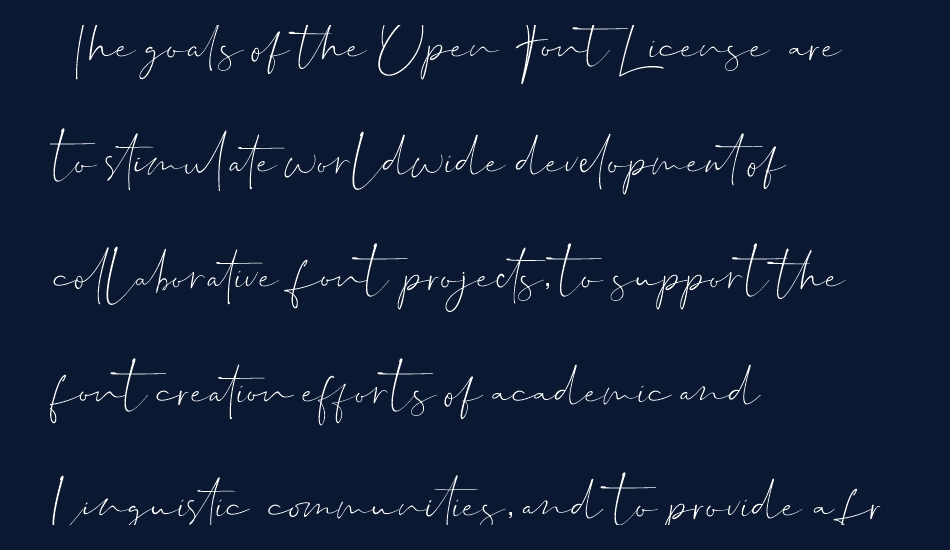 The goals of the Open Font License are
to stimulate worldwide development of
collaborative font projects, to support the
font creation efforts of academic and
linguistic communities, and to provide a fr